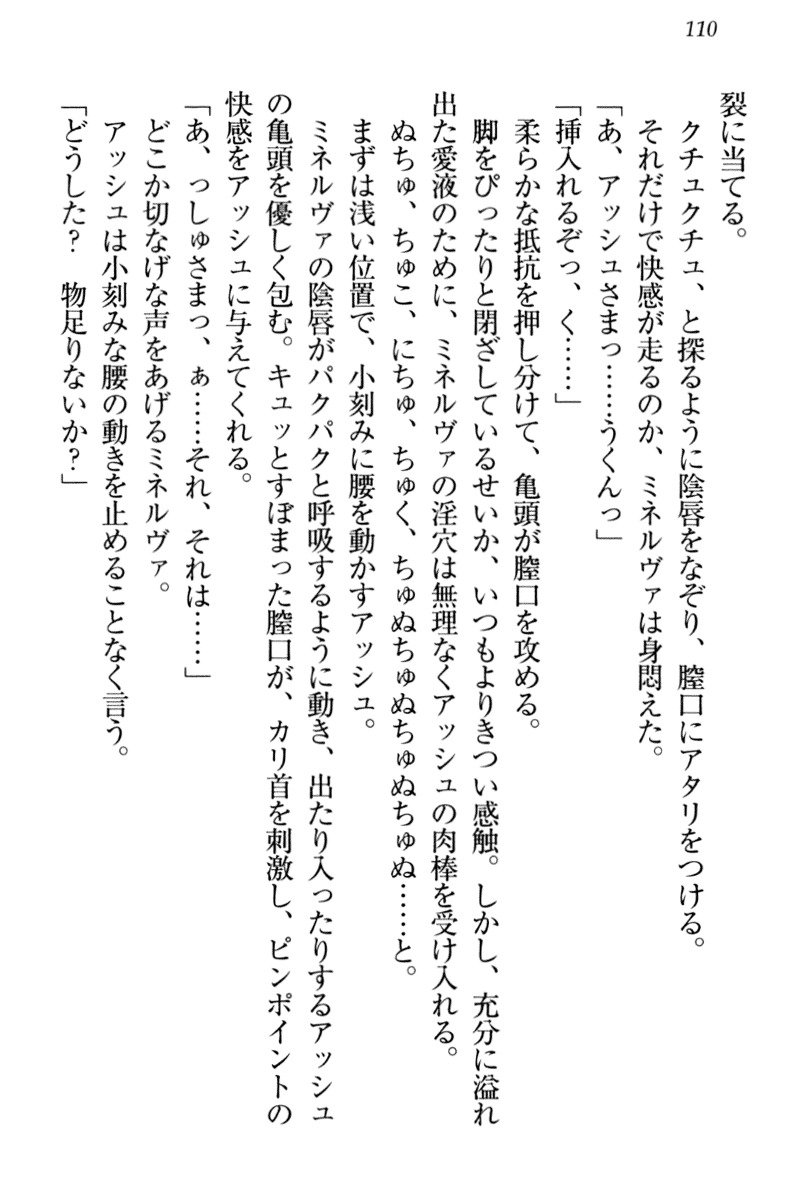 110
裂に当てる。
クチュクチュ、と探るように陰唇をなぞり、膣口にアタリをつける。
それだけで快感が走るのか、ミネルヴァは身悶えた。
「あ、アッシュさまっ……うくんっ」
「挿入れるぞっ、く……」
柔らかな抵抗を押し分けて、亀頭が膣口を攻める。
脚をぴったりと閉ざしているせいか、いつもよりきつい感触。しかし、充分に溢れ
出た愛液のために、ミネルヴァの淫穴は無理なくアッシュの肉棒を受け入れる。
ぬちゅ、ちゅこ、にちゅ、ちゅく、ちゅぬちゅぬちゅぬちゅぬ……と。
まずは浅い位置で、小刻みに腰を動かすアッシュ。
ミネルヴァの陰唇がパクパクと呼吸するように動き、出たり入ったりするアッシュ
の亀頭を優しく包む。キュッとすぼまった膣口が、カリ首を刺激し、ピンポイントの
快感をアッシュに与えてくれる。
「あ、っしゅさまっ、ぁ……それ、それは……」
どこか切なげな声をあげるミネルヴァ。
アッシュは小刻みな腰の動きを止めることなく言う。
「どうした？　物足りないか？」